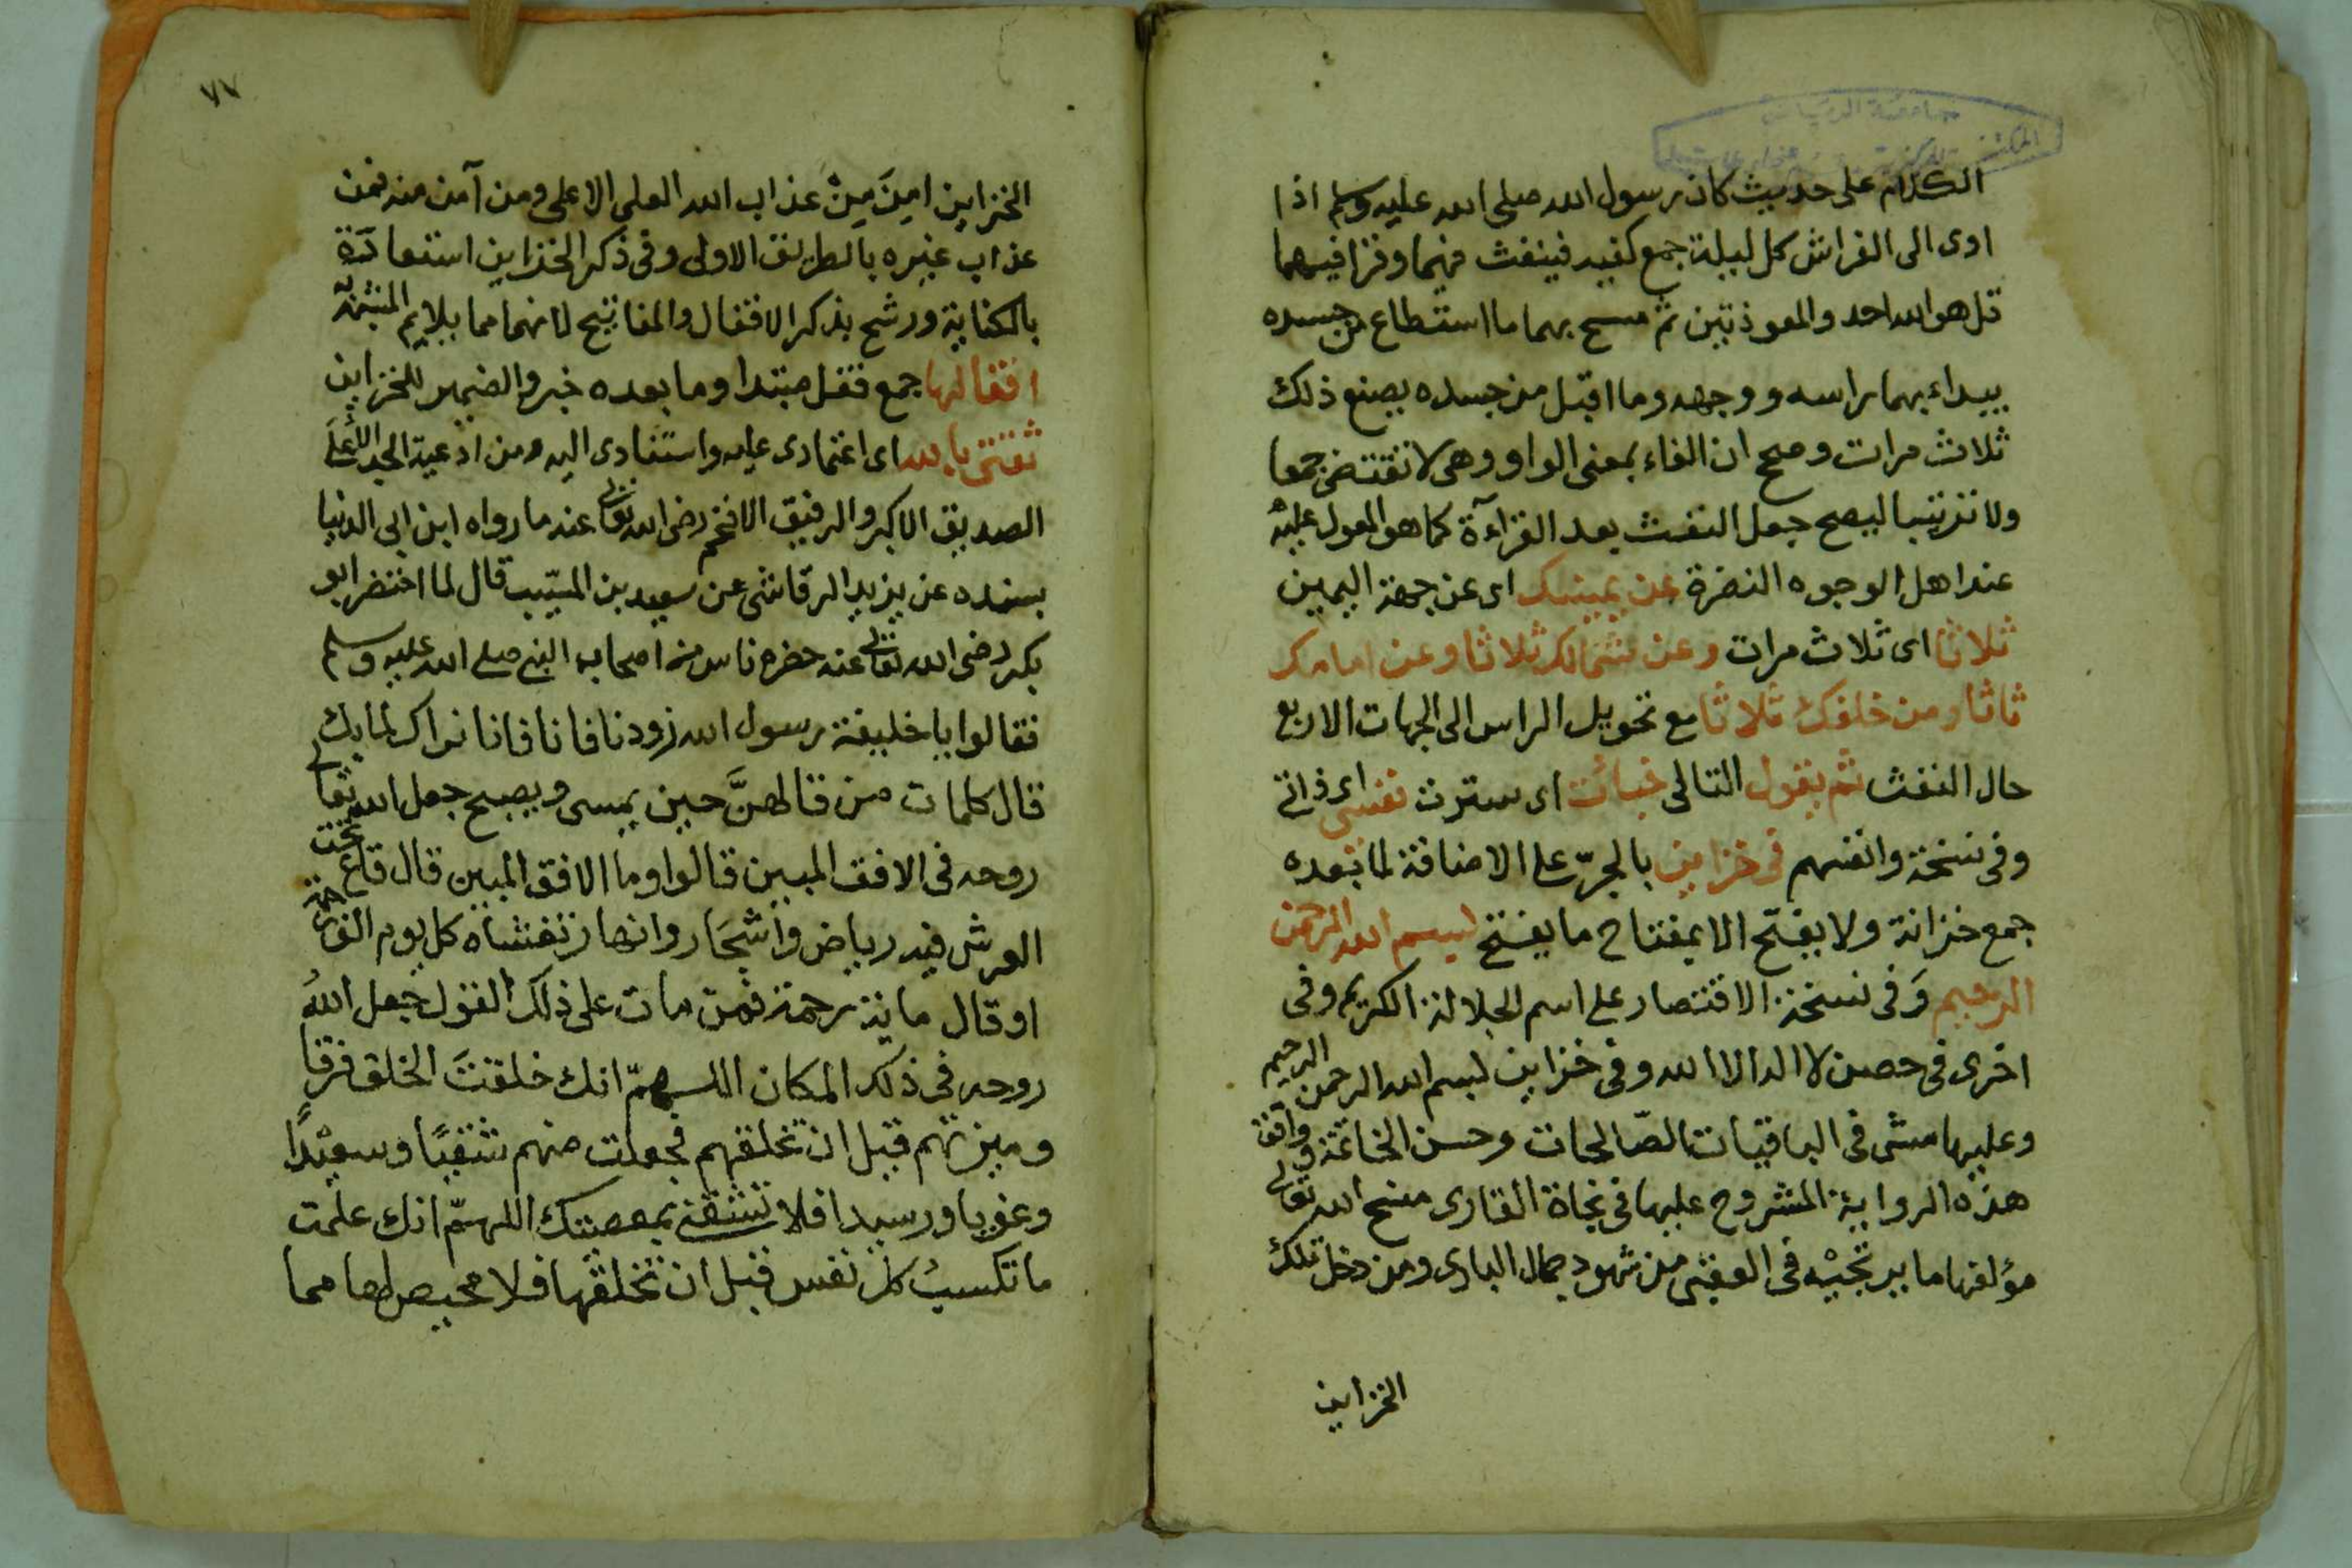 جامعة الرياض
الكلام على حديث كان رسول الله صلى الله عليه وسلم اذا
اوى الى الفراش كل ليلة جمع كفيه فينفث فيهما وقرا فيهما
قل هو الله احد والمعوذتين ثم مسح بهما ما استطاع من جسده
يبداء بهما براسه ووجهه وما اقبل من جسده يصنع ذلك
ثلاث مرات وصح ان الفاء بمعنى الواو وهى لا تقتضى جمعا
ولا ترتيبا ليصح جعل النفث بعد القراءة كما هو المعول عليه
عند اهل الوجوه النضرة عن يمينك اى عن جهة اليمين
ثلاثا اى ثلاث مرات وعن شمالك ثلاثا وعن امامك
ثلاثا ومن خلفك ثلاثا مع تحويل الراس الى الجهات الاربع
حال النفث ثم يقول التالى خبائت اى سترت نفسى اى ذاتى
وفى نسخة وانفسهم فى خزاين بالجرّ على الاضافة لما بعده
جمع خزانة ولا يفتح الا بمفتاح ما يفتح بسم الله الرحمن
الرحيم وَفى نسخة الاقتصار على اسم الجلالة الكريم وفى
اخرى فى حصن لا اله الا الله وفى خزاين بسم الله الرحمن الرحيم
وعليها مشى فى الباقيات الصّالحات وحسن الخاتمة وافق
هذه الرواية المشروح عليها فى نجاة القارى منح الله تعالى
مؤلفها ما يرتجيْه فى العقبى من شهود جمال البارى ومن دخل تلك
الخزاين
٧٧
الخزاين امِنَ مِنْ عذاب الله العلى الاعلى ومن آمن منه فمن
عذاب غيره بالطريق الاولى وفى ذكر الخزاين استعارة
بالكناية ورشح بذكر الاقفال والمفاتيح لانهما مما يلايم المشبه به
اقفالها جمع قفل مبتدا وما بعده خبر والضمير للخزاين
ثقتى بالله اى اعتمادى عليه واستنادى اليه ومن ادعية الجد الأعلى
الصديق الاكبر والرفيق الافخم رضى الله تعالى عنه ما رواه ابن ابى الدنيا
بسنده عن يزيد الرقاشى عن سعيد بن المسيّب قال لما احتضر ابو
بكر رضى الله تعالى عنه حضره ناس من اصحاب النبى صلى الله عليه وسلم
فقالوا يا خليفة رسول الله زودنا فانا فانا نراك لما بك
قال كلمات من قالهنَّ حين يمسى ويصبح جعل الله تعالى
روحه فى الافق المبين قالوا وما الافق المبين قال قاع تحت
العرش فيه رياض واشجَار وانهار تغشاه كل يوم الف رحمة
او قال ماية رحمة فمن مات على ذلك القول جعل اللهُ
روحه فى ذلك المكان اللهمّ انك خلقتَ الخلق فرقا
وميزتهم قبل ان تخلقهم فجعلت منهم شقيًا وسعيْدًا
وغويا ورسيدا فلا تشقنى بمعصيتك اللهمّ انك علمت
ما تكسبُ كل نفس قبل ان تخلقها فلا محيص لها مما